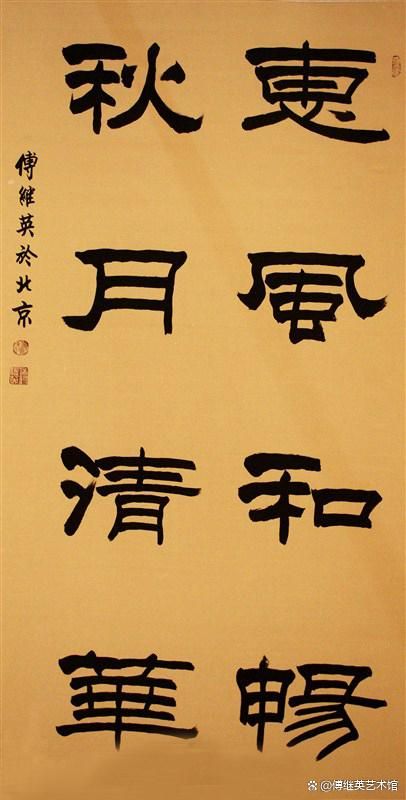 惠風和暢
秋月清華
傅繼英於北京
@傅继英艺术馆